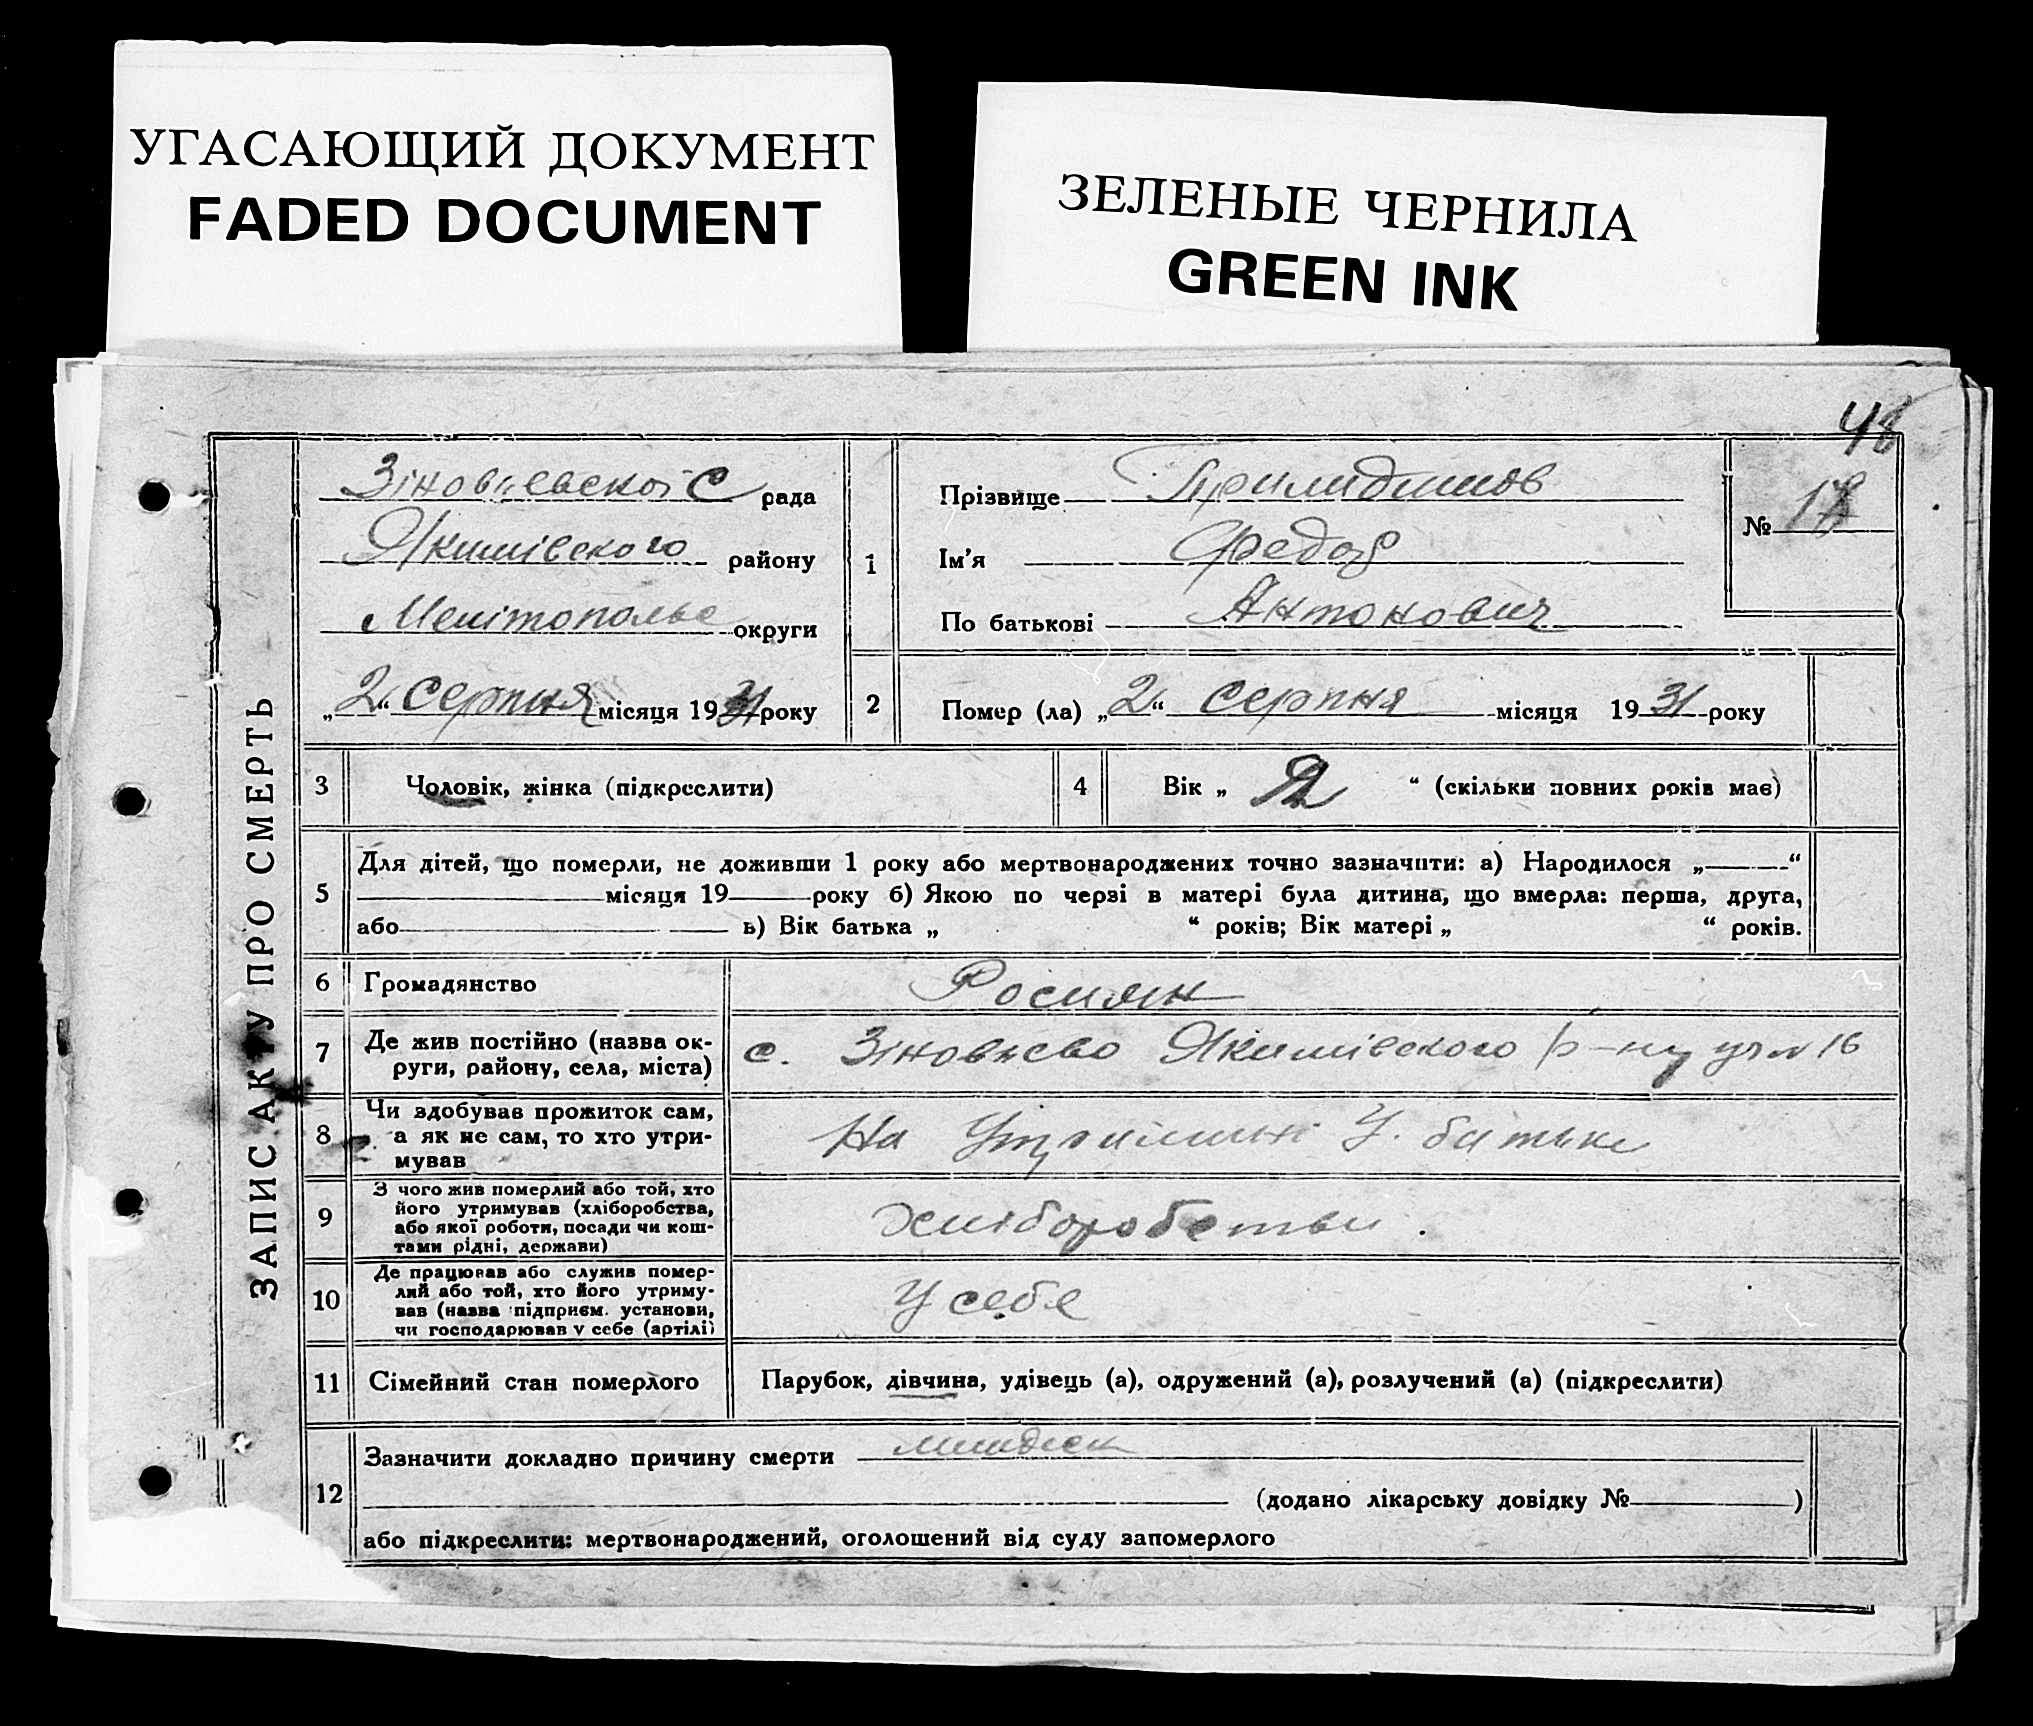 УГАСАЮЩИЙ ДОКУМЕНТ
FADED DOCUMENT
ЗЕЛЕНЫЕ ЧЕРНИЛА
GREEN INK
48
ЗАПИС АКТУ ПРО СМЕРТЬ
Зіновієвської С рада
Якимівского району
Мелітопольс округи
„2“ серпня місяця 1931 року
1
Прізвище
Ім'я Федор
По батькові Антонович
№ 18
2
Помер (ла) „2“ серпня місяця 1931 року
3
Чоловік, жінка (підкреслити)
4
Вік „ “ (скільки повних років має)
5
Для дітей, що померли, не доживши 1 року або мертвонароджених точно зазначити: а) Народилося „ “
місяця 19 року б) Якою по черзі в матері була дитина, що вмерла: перша, друга,
або в) Вік батька „ “ років; Вік матері „ “ років.
6
Громадянство
Росиян
7
Де жив постійно (назва ок-
руги, району, села, міста)
с. Зіновієво Якимівского р-ну 16
8
Чи здобував прожиток сам,
а як не сам, то хто утри-
мував
На Утриманні У батьки
9
З чого жив померлий або той, хто
його утримував (хліборобства,
або якої роботи, посади чи кош-
тами рідні, держави)
хліборобства.
10
Де працював або служив помер-
лий або той, хто його утриму-
вав (назва підприєм. установи,
чи господарював у себе (артілі)
У себе
11
Сімейний стан померлого
Парубок, дівчина, удівець (а), одружений (а), розлучений (а) (підкреслити)
12
Зазначити докладно причину смерти
(додано лікарську довідку № )
або підкреслити: мертвонароджений, оголошений від суду запомерлого